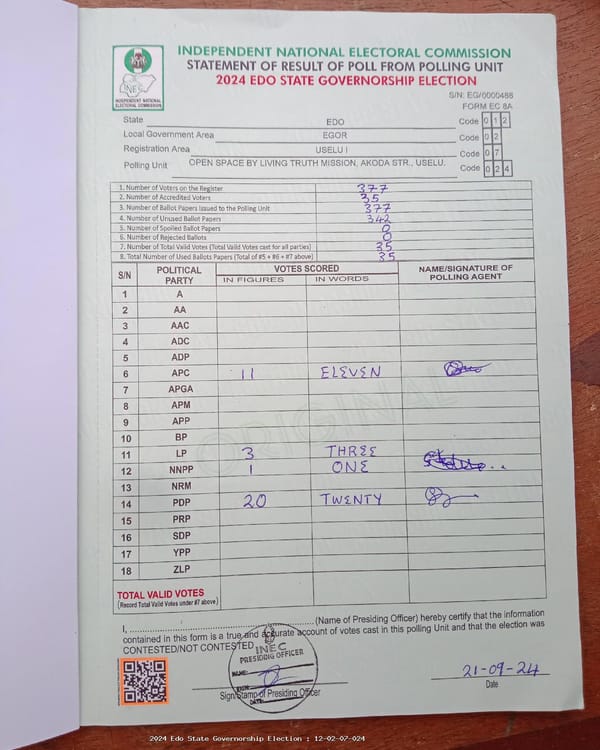 INDEPENDENT NATIONAL ELECTORAL COMMISSION
STATEMENT OF RESULT OF POLL FROM POLLING UNIT
2024 EDO STATE GOVERNORSHIP ELECTION
INEC
INDEPENDENT NATIONAL
ELECTORAL COMMISSION
S/N: EG/0000488
FORM EC 8A
State EDO Code 0 1 2
Local Government Area EGOR Code 0 2
Registration Area USELU I Code 0 7
Polling Unit OPEN SPACE BY LIVING TRUTH MISSION, AKODA STR., USELU. Code 0 2 4
1. Number of Voters on the Register 377
2. Number of Accredited Voters 35
3. Number of Ballot Papers Issued to the Polling Unit 377
4. Number of Unused Ballot Papers 342
5. Number of Spoiled Ballot Papers 0
6. Number of Rejected Ballots 0
7. Number of Total Valid Votes (Total Valid Votes cast for all parties) 35
8. Total Number of Used Ballots Papers (Total of #5 + #6 + #7 above) 35
S/N POLITICAL PARTY VOTES SCORED NAME/SIGNATURE OF POLLING AGENT
IN FIGURES IN WORDS
1 A
2 AA
3 AAC
4 ADC
5 ADP
6 APC 11 ELEVEN
7 APGA
8 APM
9 APP
10 BP
11 LP 3 THREE
12 NNPP 1 ONE
13 NRM
14 PDP 20 TWENTY
15 PRP
16 SDP
17 YPP
18 ZLP
ORIGINAL
TOTAL VALID VOTES
(Record Total Valid Votes under #7 above)
I, (Name of Presiding Officer) hereby certify that the information
contained in this form is a true and accurate account of votes cast in this polling Unit and that the election was
CONTESTED/NOT CONTESTED
INEC
PRESIDIG OFFICER
NAME:
SIGN:
DATE:
Sign/Stamp of Presiding Officer
21-09-24
Date
2024 Edo State Governorship Election : 12-02-07-024